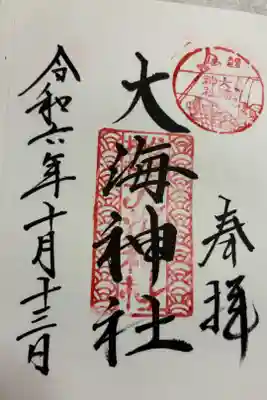 奉拝
大海神社
令和六年十月十三日